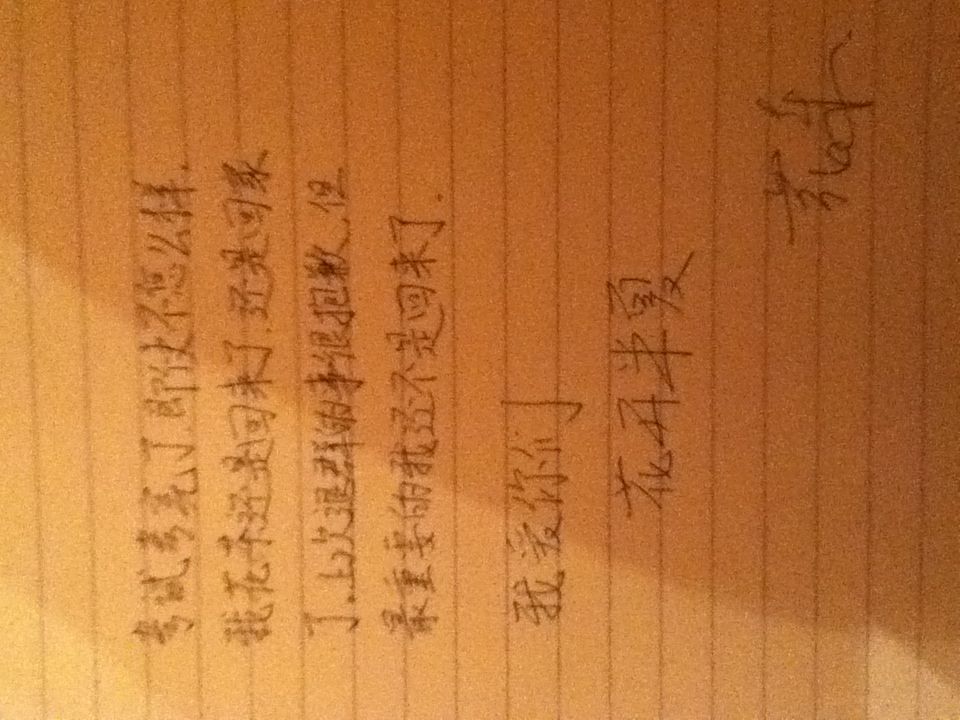 考试考完了,即使不怎么样.
我花卉还是回来了.还是回家
了.上次退群的事很抱歉,但
最重要的我还不是回来了.
我爱你们
花开半夏